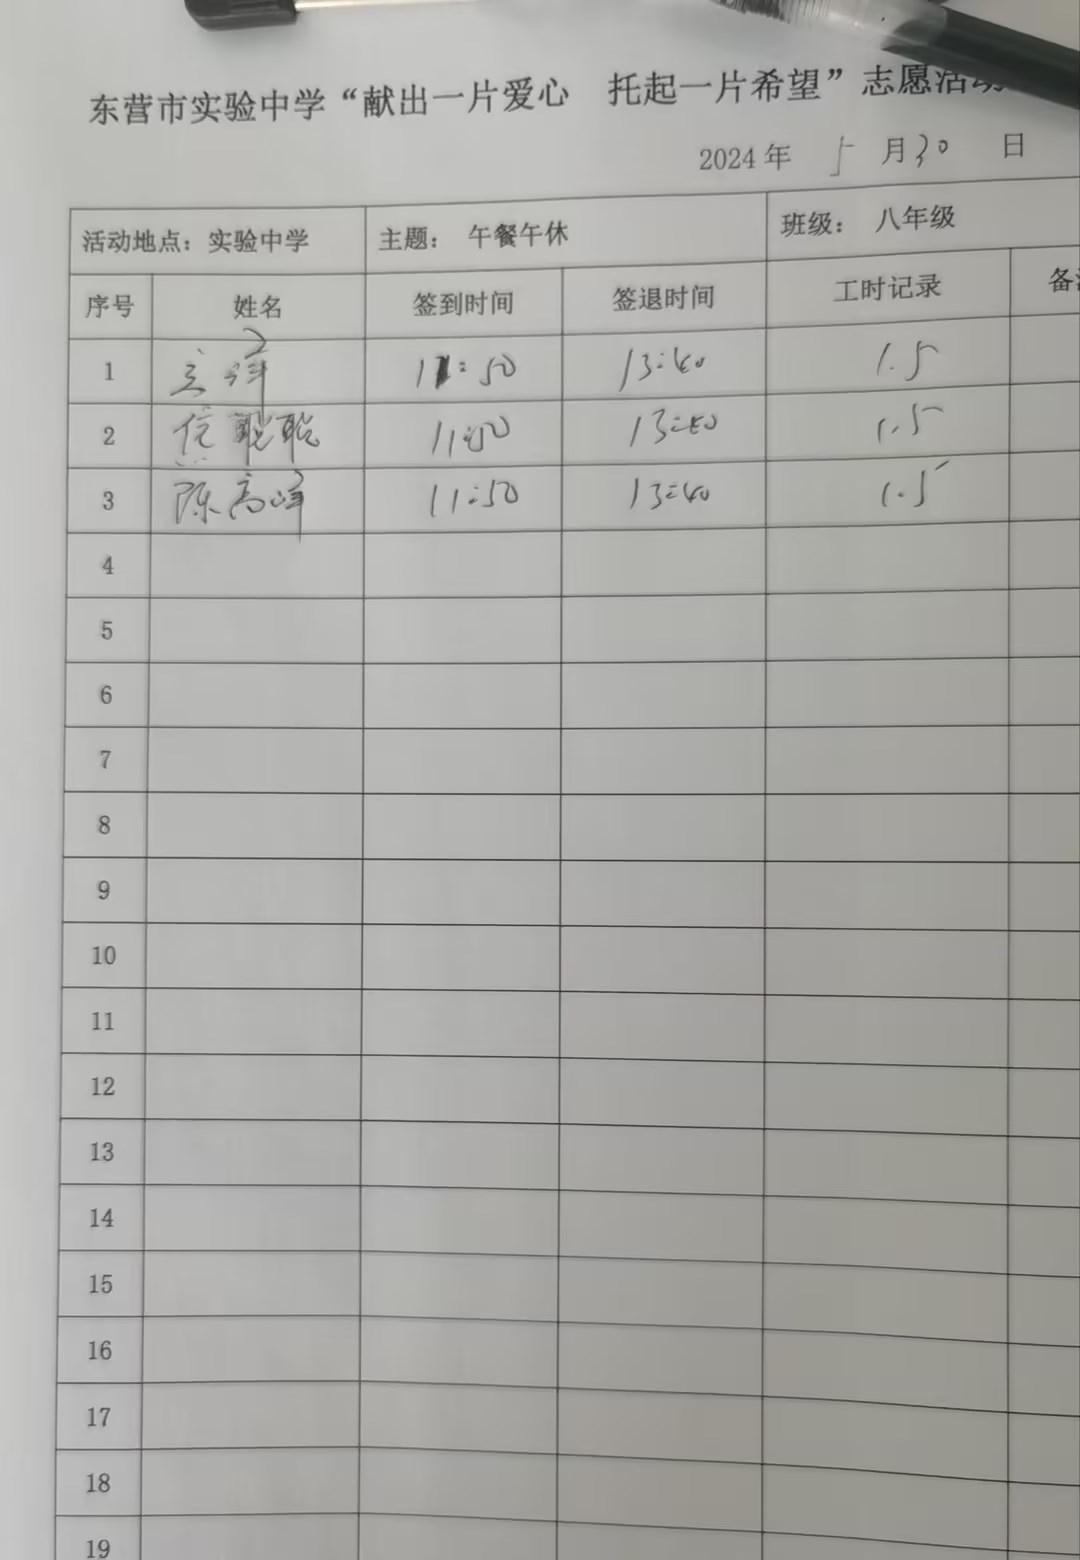 东营市实验中学“献出一片爱心 托起一片希望”志愿活动
2024年 5 月30 日
活动地点：实验中学 主题： 午餐午休 班级： 八年级
序号 姓名 签到时间 签退时间 工时记录 备
1 11:50 13:40 1.5
2 聪聪 11:50 13:40 1.5
3 陈高峰 11:50 13:40 1.5
4
5
6
7
8
9
10
11
12
13
14
15
16
17
18
19